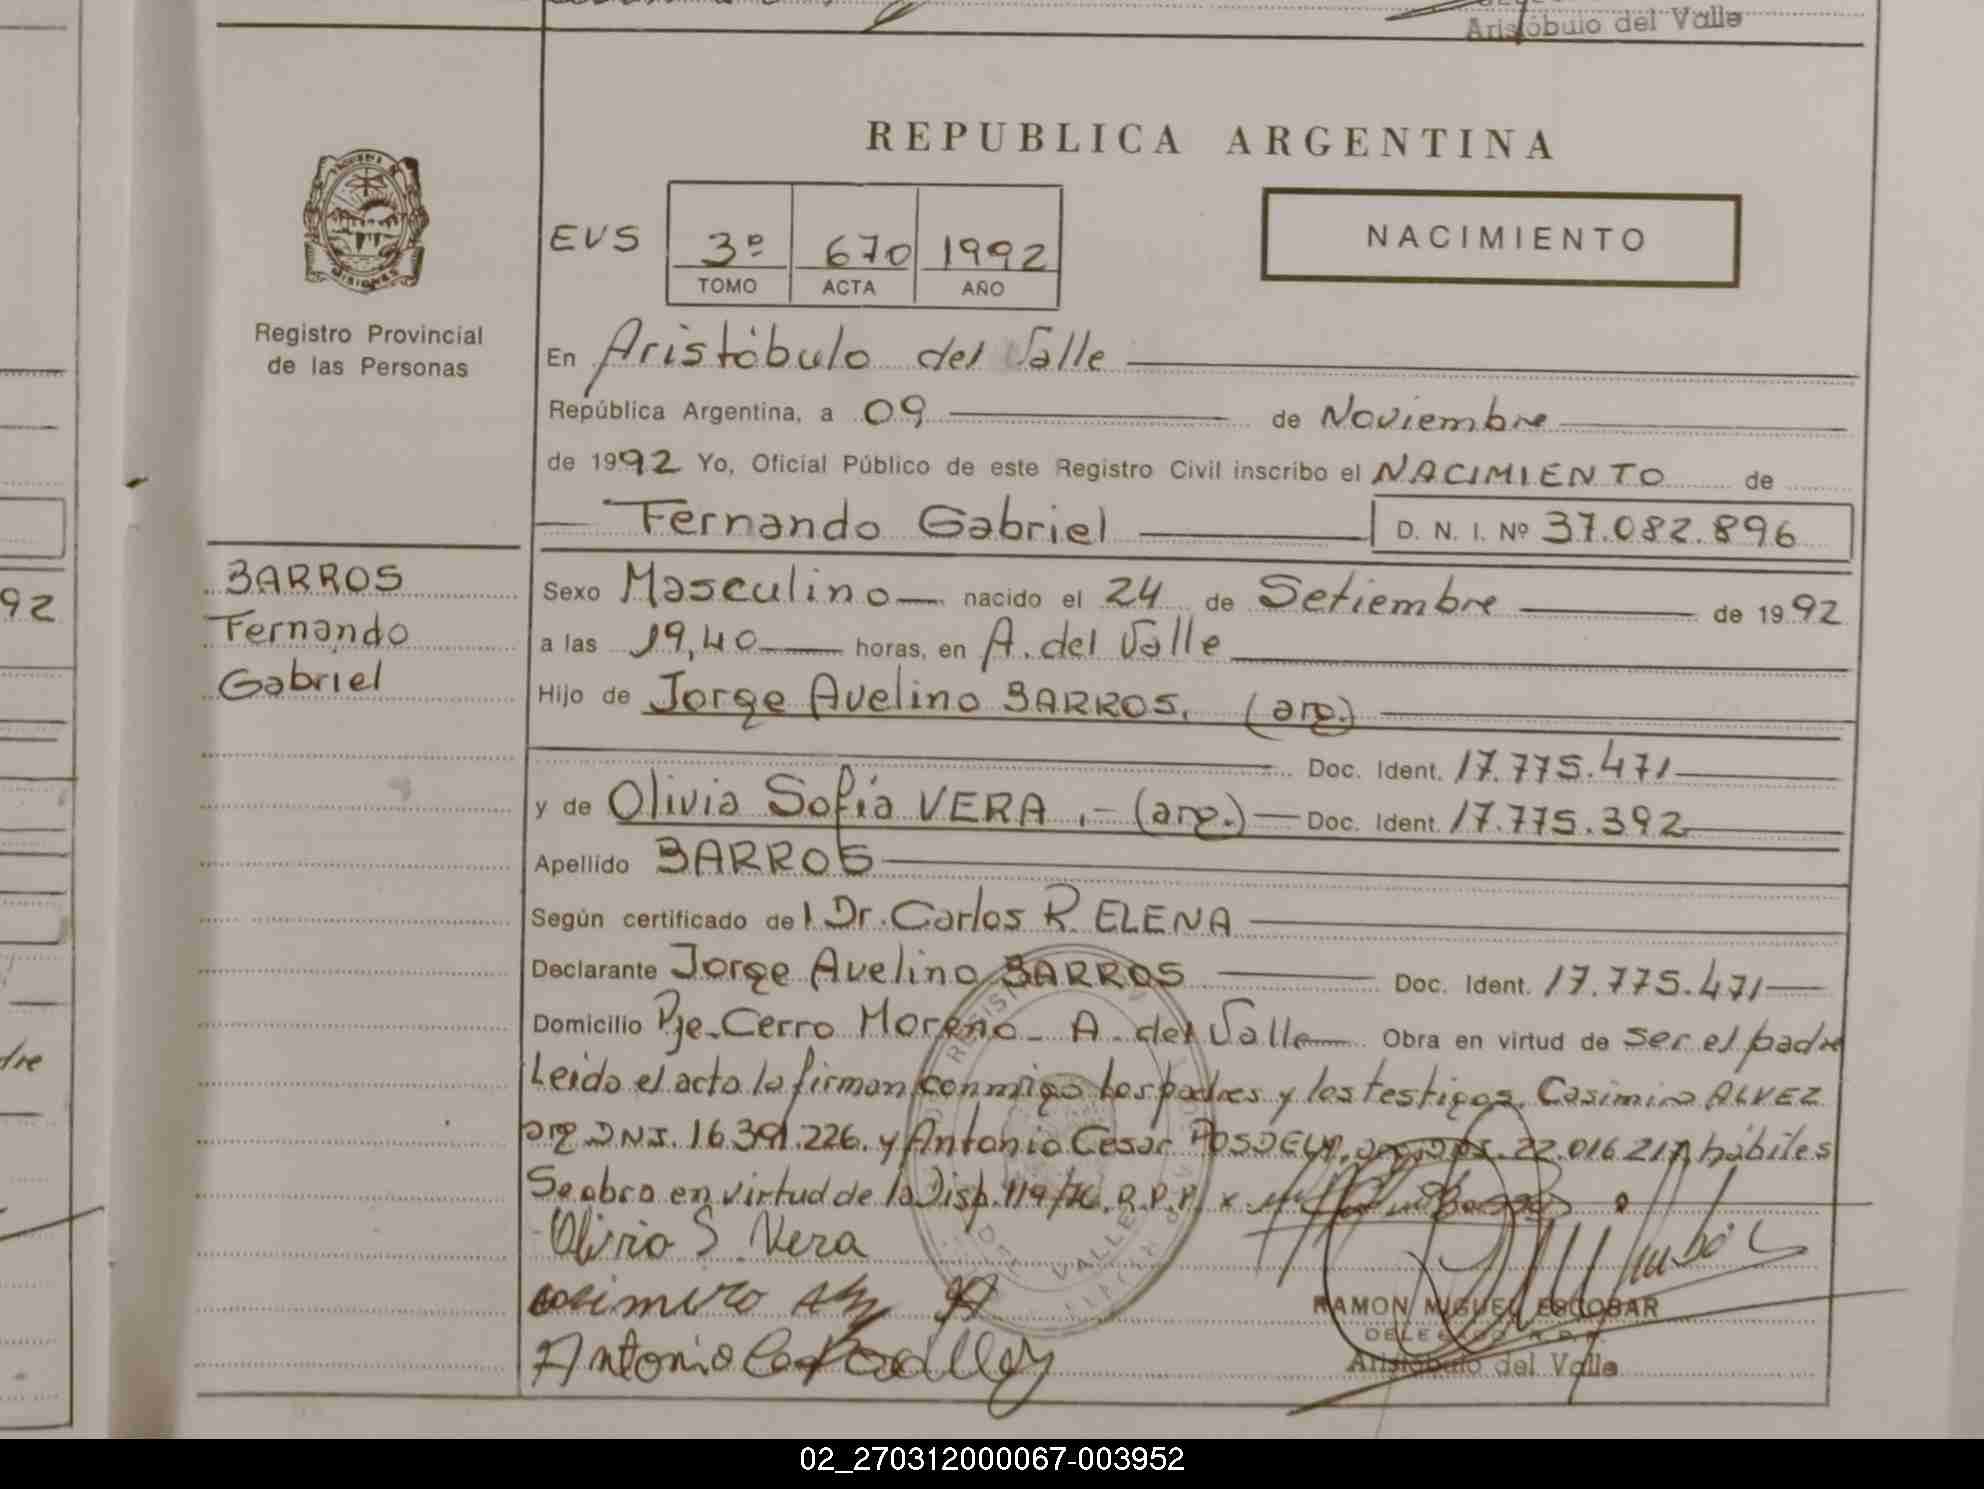 Aristóbulo del Valle
REPUBLICA ARGENTINA
MISIONES
Registro Provincial
de las Personas
EVS 3º 670 1992
TOMO ACTA AÑO
NACIMIENTO
En Aristóbulo del Valle
República Argentina, a 09 de Noviembre
de 1992 Yo, Oficial Público de este Registro Civil inscribo el NACIMIENTO de
Fernando Gabriel D. N. I. Nº 37.082.896
BARROS
Fernando
Gabriel
Sexo Masculino nacido el 24 de Setiembre de 1992
a las 19,40 horas, en A. del Valle
Hijo de Jorge Avelino BARROS. (arg.)
Doc. Ident. 17.775.471
y de Olivia Sofía VERA .- (arg.) Doc. Ident. 17.775.392
Apellido BARROS
Según certificado del Dr. Carlos R. ELENA
Declarante Jorge Avelino BARROS Doc. Ident. 17.775.471
Domicilio Pje. Cerro Moreno - A. del Valle Obra en virtud de ser el padre
Leida el acta la firman conmigo los padres y los testigos. Casimiro ALVEZ
arg DNI. 16.391.226. y Antonio Cesar 22.016.217 hábiles
Se obra en virtud de la Disp. 119/76. R.P.P.
Olivia S. Vera
casimiro
Antonio
RAMON MIGUEL ESCOBAR
DELEGADO R.P.P.
Aristóbulo del Valle
92
dre
02_270312000067-003952